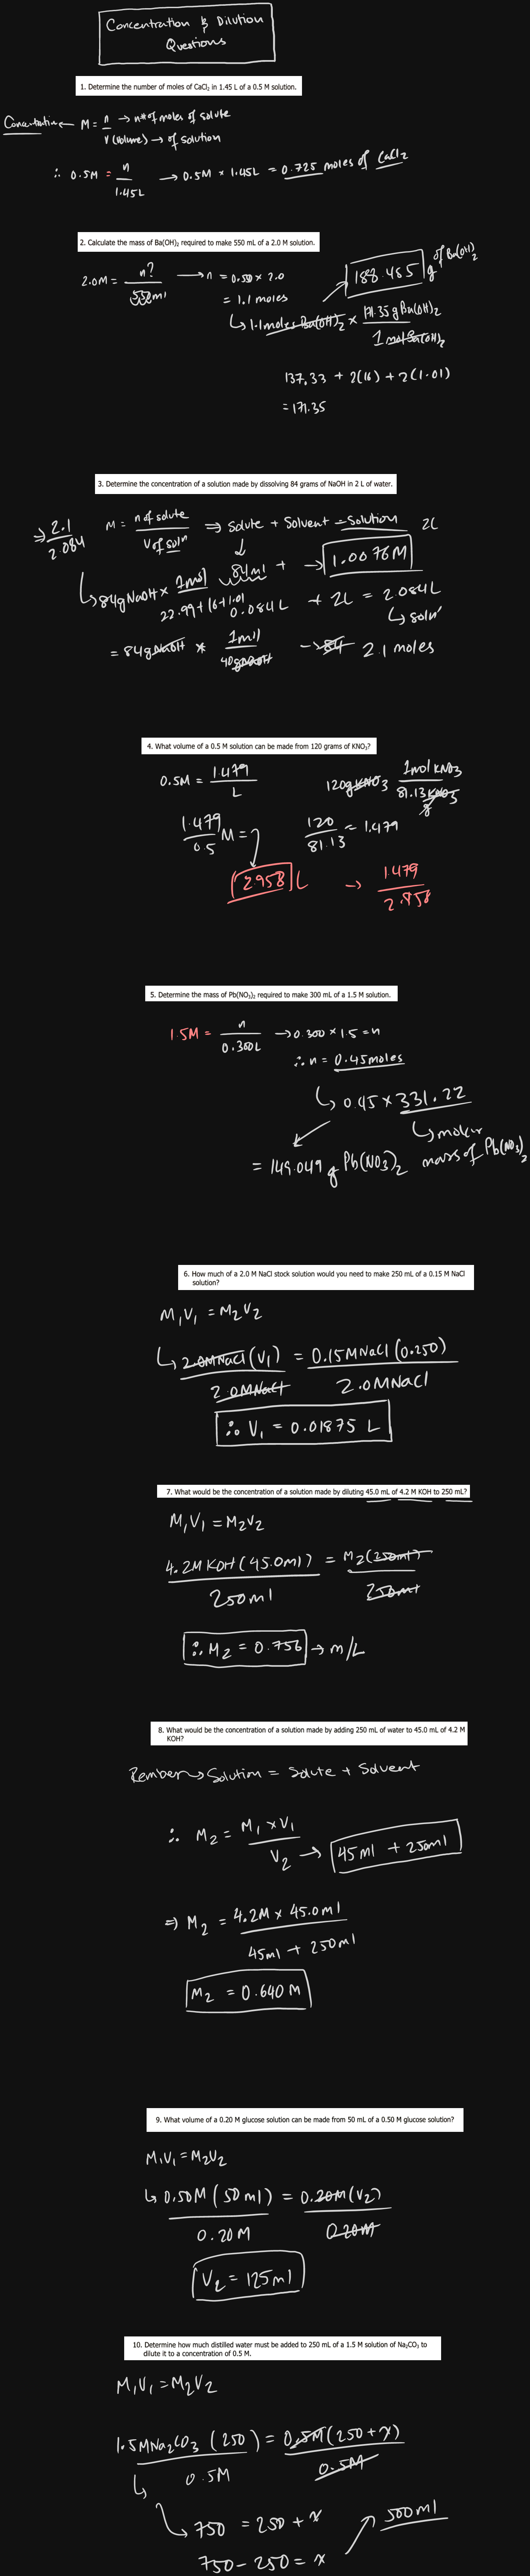 Concentration & Dilution
Questions
1. Determine the number of moles of CaCl₂ in 1.45 L of a 0.5 M solution.
Concentration ← M = n/V → nº of moles of solute
(volume) → of solution
∴ 0.5M = n/1.45L → 0.5M × 1.45L = 0.725 moles of CaCl2
2. Calculate the mass of Ba(OH)₂ required to make 550 mL of a 2.0 M solution.
2.0M = n?/550ml → n = 0.50 × 2.0
= 1.1 moles
188.485 g of Ba(OH)2
↳ 1.1 moles Ba(OH)2 × 171.35 g Ba(OH)2 / 1 mol Ba(OH)2
137.33 + 2(16) + 2(1.01)
= 171.35
3. Determine the concentration of a solution made by dissolving 84 grams of NaOH in 2 L of water.
⇒ 2.1/2.084
M = n of solute / V of solⁿ ⇒ Solute + Solvent = Solution 2L
↓
84ml + → 1.0076M
↳ 84g NaOH × 1mol / 22.99+16+1.01
0.084L + 2L = 2.084L
↳ solnⁿ
= 84g NaOH * 1mol / 40g NaOH → 84 2.1 moles
4. What volume of a 0.5 M solution can be made from 120 grams of KNO₂?
0.5M = 1.479/L
120g KNO3 1mol KNO3 / 81.13 KNO3 g
1.479/0.5 M =
120/81.13 = 1.479
2.958 L → 1.479/2.958
5. Determine the mass of Pb(NO₃)₂ required to make 300 mL of a 1.5 M solution.
1.5M = n/0.300L → 0.300 × 1.5 = n
∴ n = 0.45 moles
↳ 0.45 × 331.22
↳ molar mass of Pb(NO3)2
= 149.049 g Pb(NO3)2
6. How much of a 2.0 M NaCl stock solution would you need to make 250 mL of a 0.15 M NaCl
solution?
M1V1 = M2V2
↳ 2.0M NaCl (V1) / 2.0M NaCl = 0.15M NaCl (0.250) / 2.0M NaCl
∴ V1 = 0.01875 L
7. What would be the concentration of a solution made by diluting 45.0 mL of 4.2 M KOH to 250 mL?
M1V1 = M2V2
4.2M KOH (45.0ml) / 250ml = M2 (250ml) / 250ml
∴ M2 = 0.756 → m/L
8. What would be the concentration of a solution made by adding 250 mL of water to 45.0 mL of 4.2 M
KOH?
Rember → Solution = Solute + Solvent
∴ M2 = M1 × V1 / V2 → 45ml + 250ml
⇒ M2 = 4.2M × 45.0ml / 45ml + 250ml
M2 = 0.640 M
9. What volume of a 0.20 M glucose solution can be made from 50 mL of a 0.50 M glucose solution?
M1V1 = M2V2
↳ 0.50M (50ml) / 0.20M = 0.20M (V2) / 0.20M
V2 = 125ml
10. Determine how much distilled water must be added to 250 mL of a 1.5 M solution of Na₂CO₃ to
dilute it to a concentration of 0.5 M.
M1V1 = M2V2
1.5M Na2CO3 (250) / 0.5M = 0.5M (250 + x) / 0.5M
↳ 750 = 250 + x
750 - 250 = x
500ml